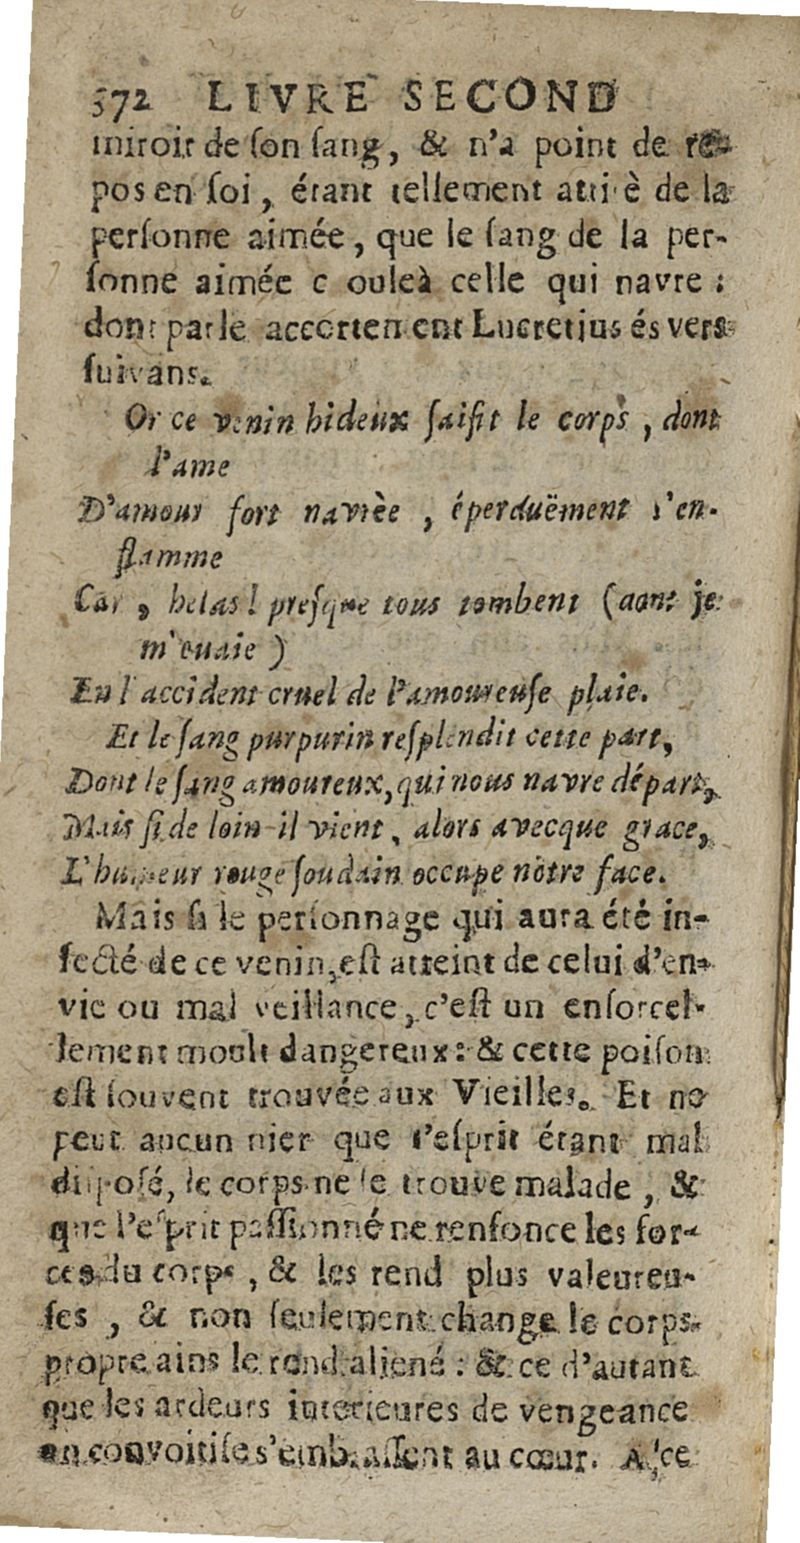 572 LIVRE SECOND
miroir de son sang, & n'a point de re-
pos en soi, étant tellement attirè de la
personne aimée, que le sang de la per-
sonne aimée c ouleà celle qui navre :
dont parle accortement Lucretius és vers
suivans.
Or ce venin hideux saisit le corps, dont
l'ame
D'amour fort navrèe, éperduëment s'en-
flamme
Car, helas! presque tous tombent (dont je
m'émaie)
En l'accident cruel de l'amoureuse plaie.
Et le sang purpurin resplendit cette part,
Dont le sang amoureux, qui nous navre départ,
Mais si de loin il vient, alors avecque grace,
L'humeur rouge soudain occupe nòtre face.
Mais si le personnage qui aura été in-
fecté de ce venin, est atteint de celui d'en-
vie ou mal veillance, c'est un ensorcel-
lement moult dangereux : & cette poison
est souvent trouvée aux Vieilles. Et ne
peut aucun nier que l'esprit étant mal
disposé, le corps ne se trouve malade, &
que l'esprit passionné ne renfonce les for-
ces du corps, & les rend plus valeureu-
ses, & non seulement change le corps
propre ains le rend aliené : & ce d'autant
que les ardeurs interieures de vengeance
en convoitise s'embrassent au cœur. A ce